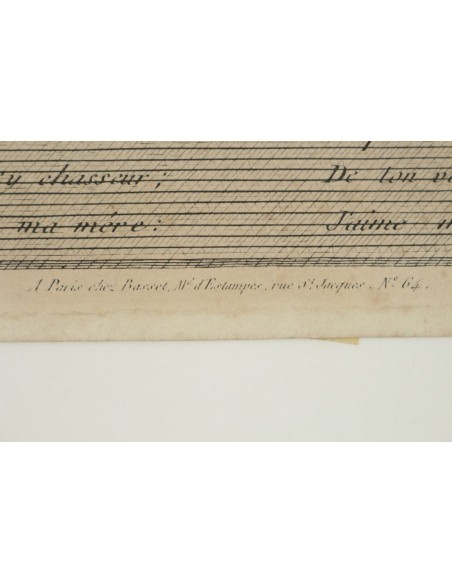 y chasseur; De ton
ma mère: J'aime
A Paris chez Basset, Md. d'Estampes, rue St. Jacques, No. 64.